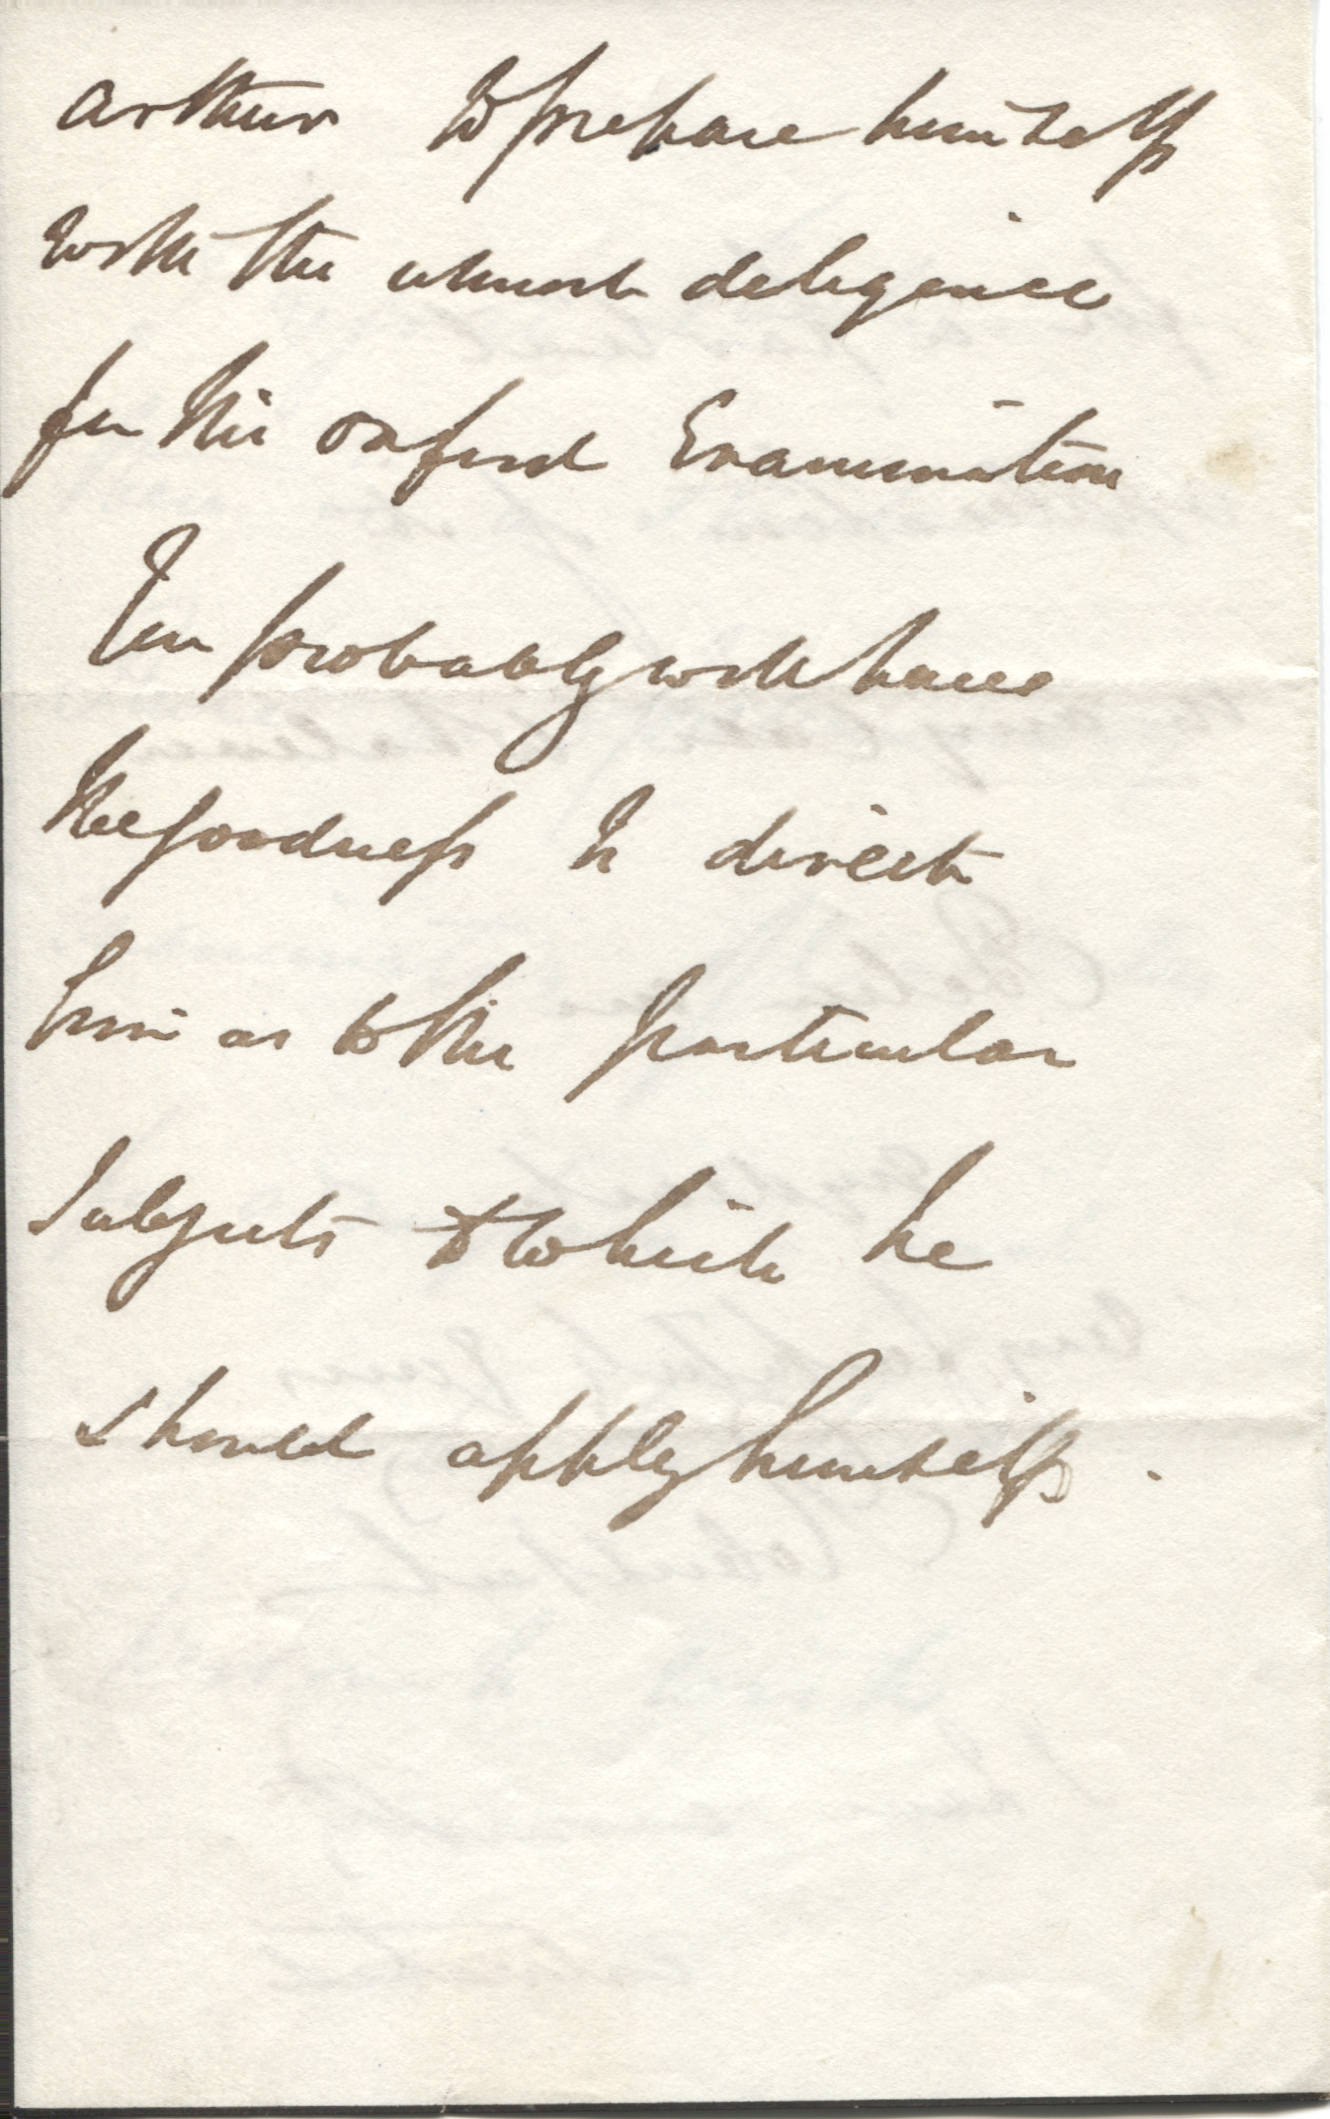 Arthur to prepare himself
with the utmost deligence
for the Oxford Examination
You probably will have
the goodness to direct
him as to the particular
Subjects to which he
should apply himself.